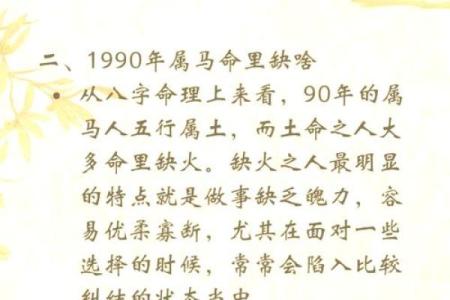 二、1990年属马命里缺啥
• 从八字命理上来看，90年的属
马人五行属土，而土命之人大
多命里缺火。缺火之人最明显
的特点就是做事缺乏魄力，容
易优柔寡断，尤其在面对一些
选择的时候，常常会陷入比较
纠结的状态当中